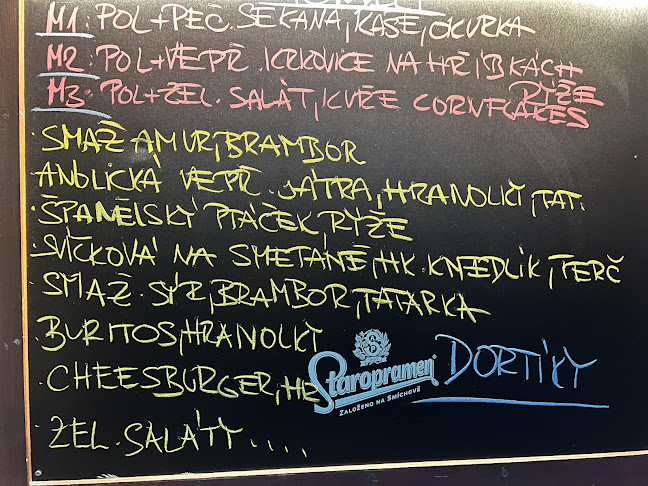 M1: POL+PEČ. SEKANÁ, KAŠE, OKURKA
M2: POL+VEPŘ. KRKOVICE NA HŘÍBKÁCH
RÝŽE
M3: POL+ZEL. SALÁT, KUŘE CORNFLAKES
SMAŽ AMUR, BRAMBOR
ANGLICKÁ VEPŘ. JÁTRA, HRANOLKY, TAT.
ŠPANĚLSKÝ PTÁČEK, RÝŽE
SVÍČKOVÁ NA SMETANĚ, HK. KNEDLÍK, TERČ
SMAŽ. SÝR, BRAMBOR, TATARKA
BURITOS, HRANOLKY
CHEESBURGER, HE
Staropramen
ZALOŽENO NA SMÍCHOVĚ
DORTÍKY
ZEL. SALÁTY....